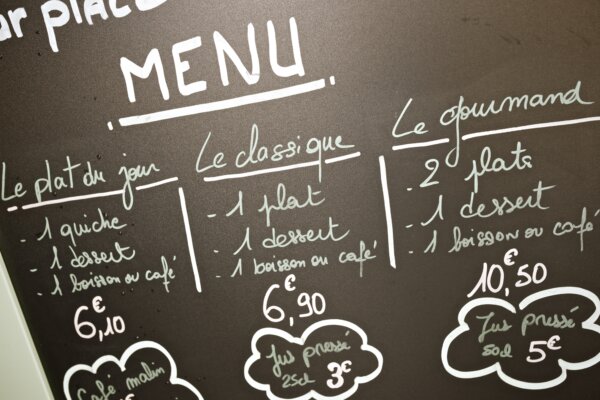 MENU
Le plat du jour
- 1 quiche
- 1 dessert
- 1 boisson ou café
6€,10
Café matin
Le classique
- 1 plat
- 1 dessert
- 1 boisson ou café
6€,90
Jus pressé
25cl 3€
Le gourmand
- 2 plats
- 1 dessert
- 1 boisson ou café
10€,50
Jus pressé
50cl 5€